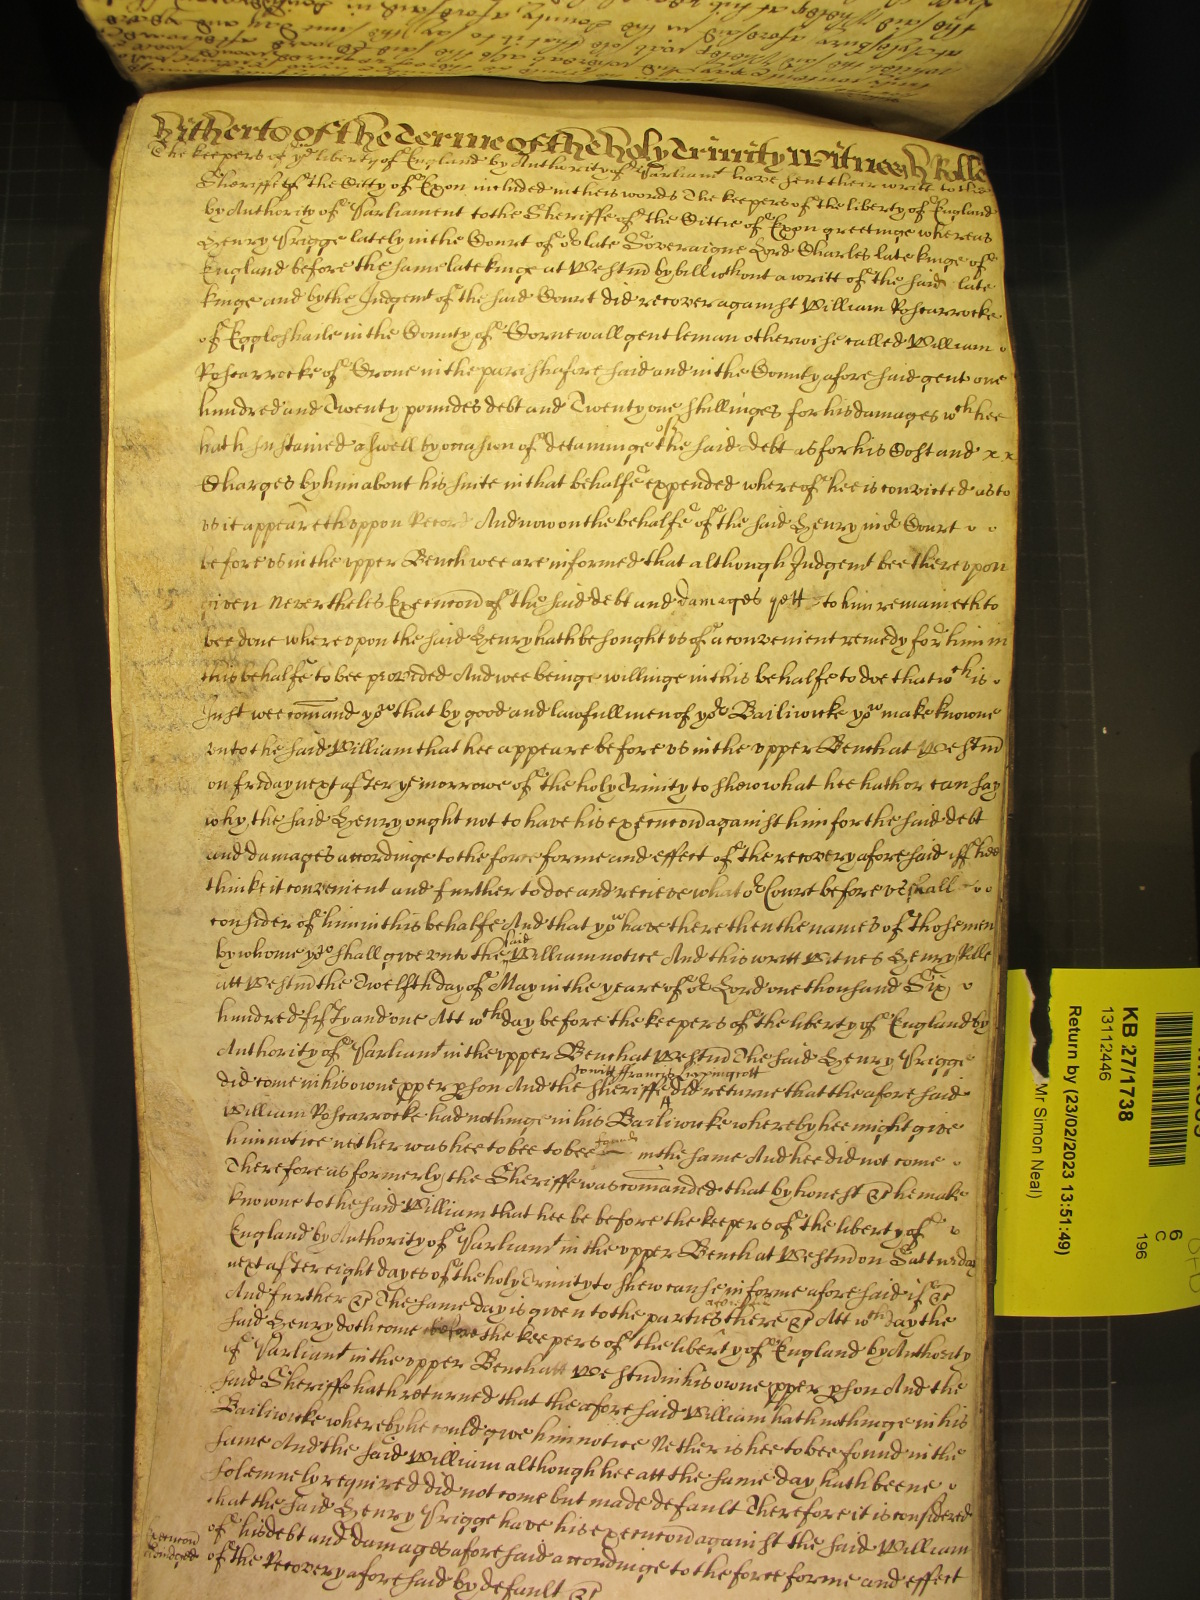 Hitherto of the Terme of the holy Trinity Witnes H Rolle
The keepers of ye liberty of England by Authority of Parliamt have sent their writt to the
Sheriffe of the Citty of Exon included in theis words The keepers of the liberty of England
by Authority of Parliament to the Sheriffe of the Cittie of Exon greetinge whereas
Henry Prigge lately in the Court of or late Soveraigne Lord Charles late kinge of
England before the same late kinge at Westm by bill wthout a writt of the said late
kinge and by the Judgent of the said Court did recover against William Roscarrocke
of Eggloshaile in the County of Cornewall gentleman otherwise called William
Roscarrocke of Crone in the parish aforesaid and in the County aforesaid gent one
hundred and Twenty poundes debt and Twenty one shillinges for his damages wch hee
hath sustained aswell by occasion of detaininge of the said debt as for his Cost and x x
Charges by him about his suite in that behalfe expended whereof hee is convicted as to
us it appeareth uppon Record And now on the behalfe of the said Henry in or Court
before us in the upper Bench wee are informed that although Judgent bee thereupon
given Neverthelës Execucon of the said debt and damages yett to him remaineth to
bee done whereupon the said Henry hath besought us of a convenient remedy for him in
this behalfe to bee provided And wee beinge willinge in this behalfe to doe that wch is
Just wee comand you that by good and lawfull men of yor Bailiwicke you make knowne
unto the said William that hee appeare before us in the upper Bench at Westm
on friday next after ye morrowe of the holy Trinity to shew what hee hath or can say
why the said Henry ought not to have his execucon against him for the said debt
and damages accordinge to the force forme and effect of the recovery aforesaid iff hee
thinke it convenient and further to doe and recieve what or Court before us shall
consider of him in this behalfe And that you have there then the names of those men
by whome you shall give unto the said William notice And this writt Witnes Henry Rolle
att Westm the Twelfth day of May in the yeare of or Lord one thousand Six
hundred fifty and one Att wch day before the keepers of the liberty of England by
Authority of Parliamt in the upper Bench at Westm The said Henry Prigge
did come in his owne pper pson And the Sheriffe to witt ffrancis Lippingcott did returne that the aforesaid
William Roscarrocke had nothinge in his Bailiwicke whereby hee might give
him notice nether was hee to bee to bee found in the same And hee did not come
Therefore as formerly the Sheriffe was comanded that by honest &c he make
knowne to the said William that hee be before the keepers of the liberty of
England by Authority of Parliamt in the upper Bench at Westm on Satturday
next after eight dayes of the holy Trinity to shew cause in forme aforesaid if &c
And further &c The same day is given to the parties there &c Att wch day the
said Henry doth come before the keepers of the liberty of England by Authority
of Parliamt in the upper Bench att Westm in his owne pper pson And the
said Sheriffe hath returned that the aforesaid William hath nothinge in his
Bailiwicke whereby he could give him notice Nether is hee to bee found in the
same And the said William although hee att the same day hath beene
solemnely required did not come but made default Therefore it is considered
that the said Henry Prigge have his execucon against the said William
of his debt and damages aforesaid accordinge to the force forme and effect
of the Recovery aforesaid by default &c
KB 27/1738
13112446
Return by (23/02/2023 13:51:49)
Mr Simon Neal)
6
C
196